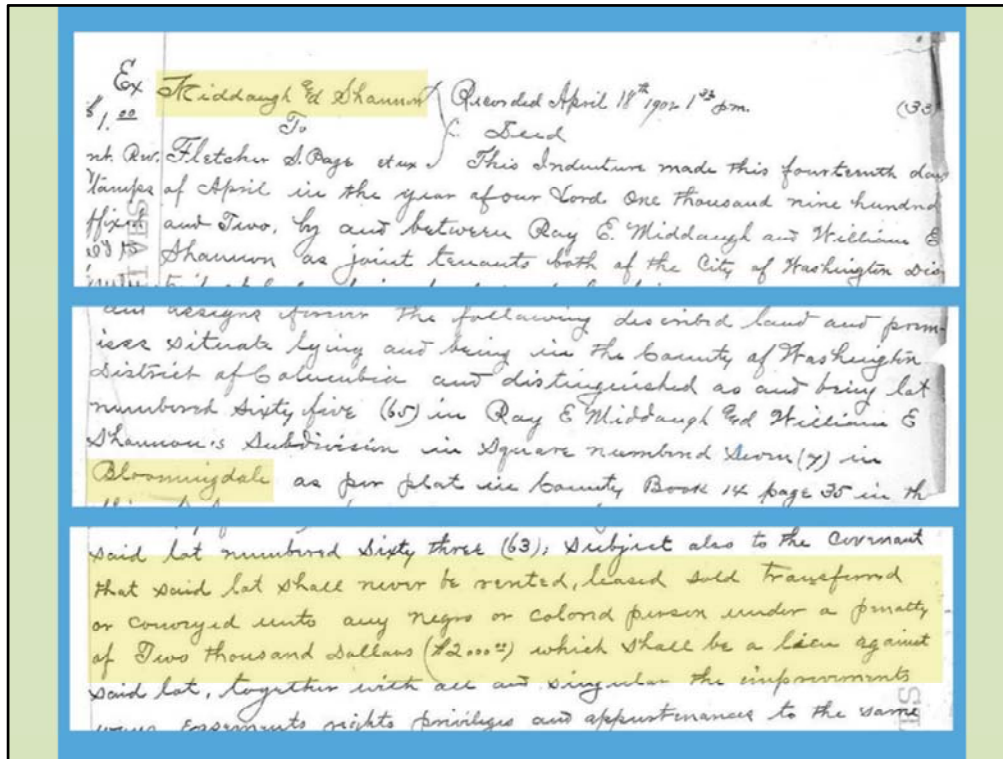 Ex Middaugh & Shannon Recorded April 18th 1902 1 pm. (33)
$1.00 To Deed
nt. Rev. Fletcher S. Page et ux This Indenture made this fourteenth day
Stamps of April in the year of our Lord One thousand nine hundred
ffixed and Two, by and between Ray E. Middaugh and William E
Shannon as joint tenants both of the City of Washington Dis
and assigns forever the following described land and prem-
ises situate lying and being in the County of Washington
District of Columbia and distinguished as and being lot
numbered Sixty five (65) in Ray E Middaugh and William E
Shannon's Subdivision in Square numbered Seven (7) in
Bloomingdale as per plat in County Book 14 page 35 in th
said lot numbered Sixty three (63); Subject also to the Covenant
that said lot shall never be rented, leased sold transferred
or conveyed unto any negro or colored person under a penalty
of Two thousand Dollars ($2000.00) which shall be a lien against
said lot, together with all and singular the improvements
ways easements rights privileges and appurtenances to the same